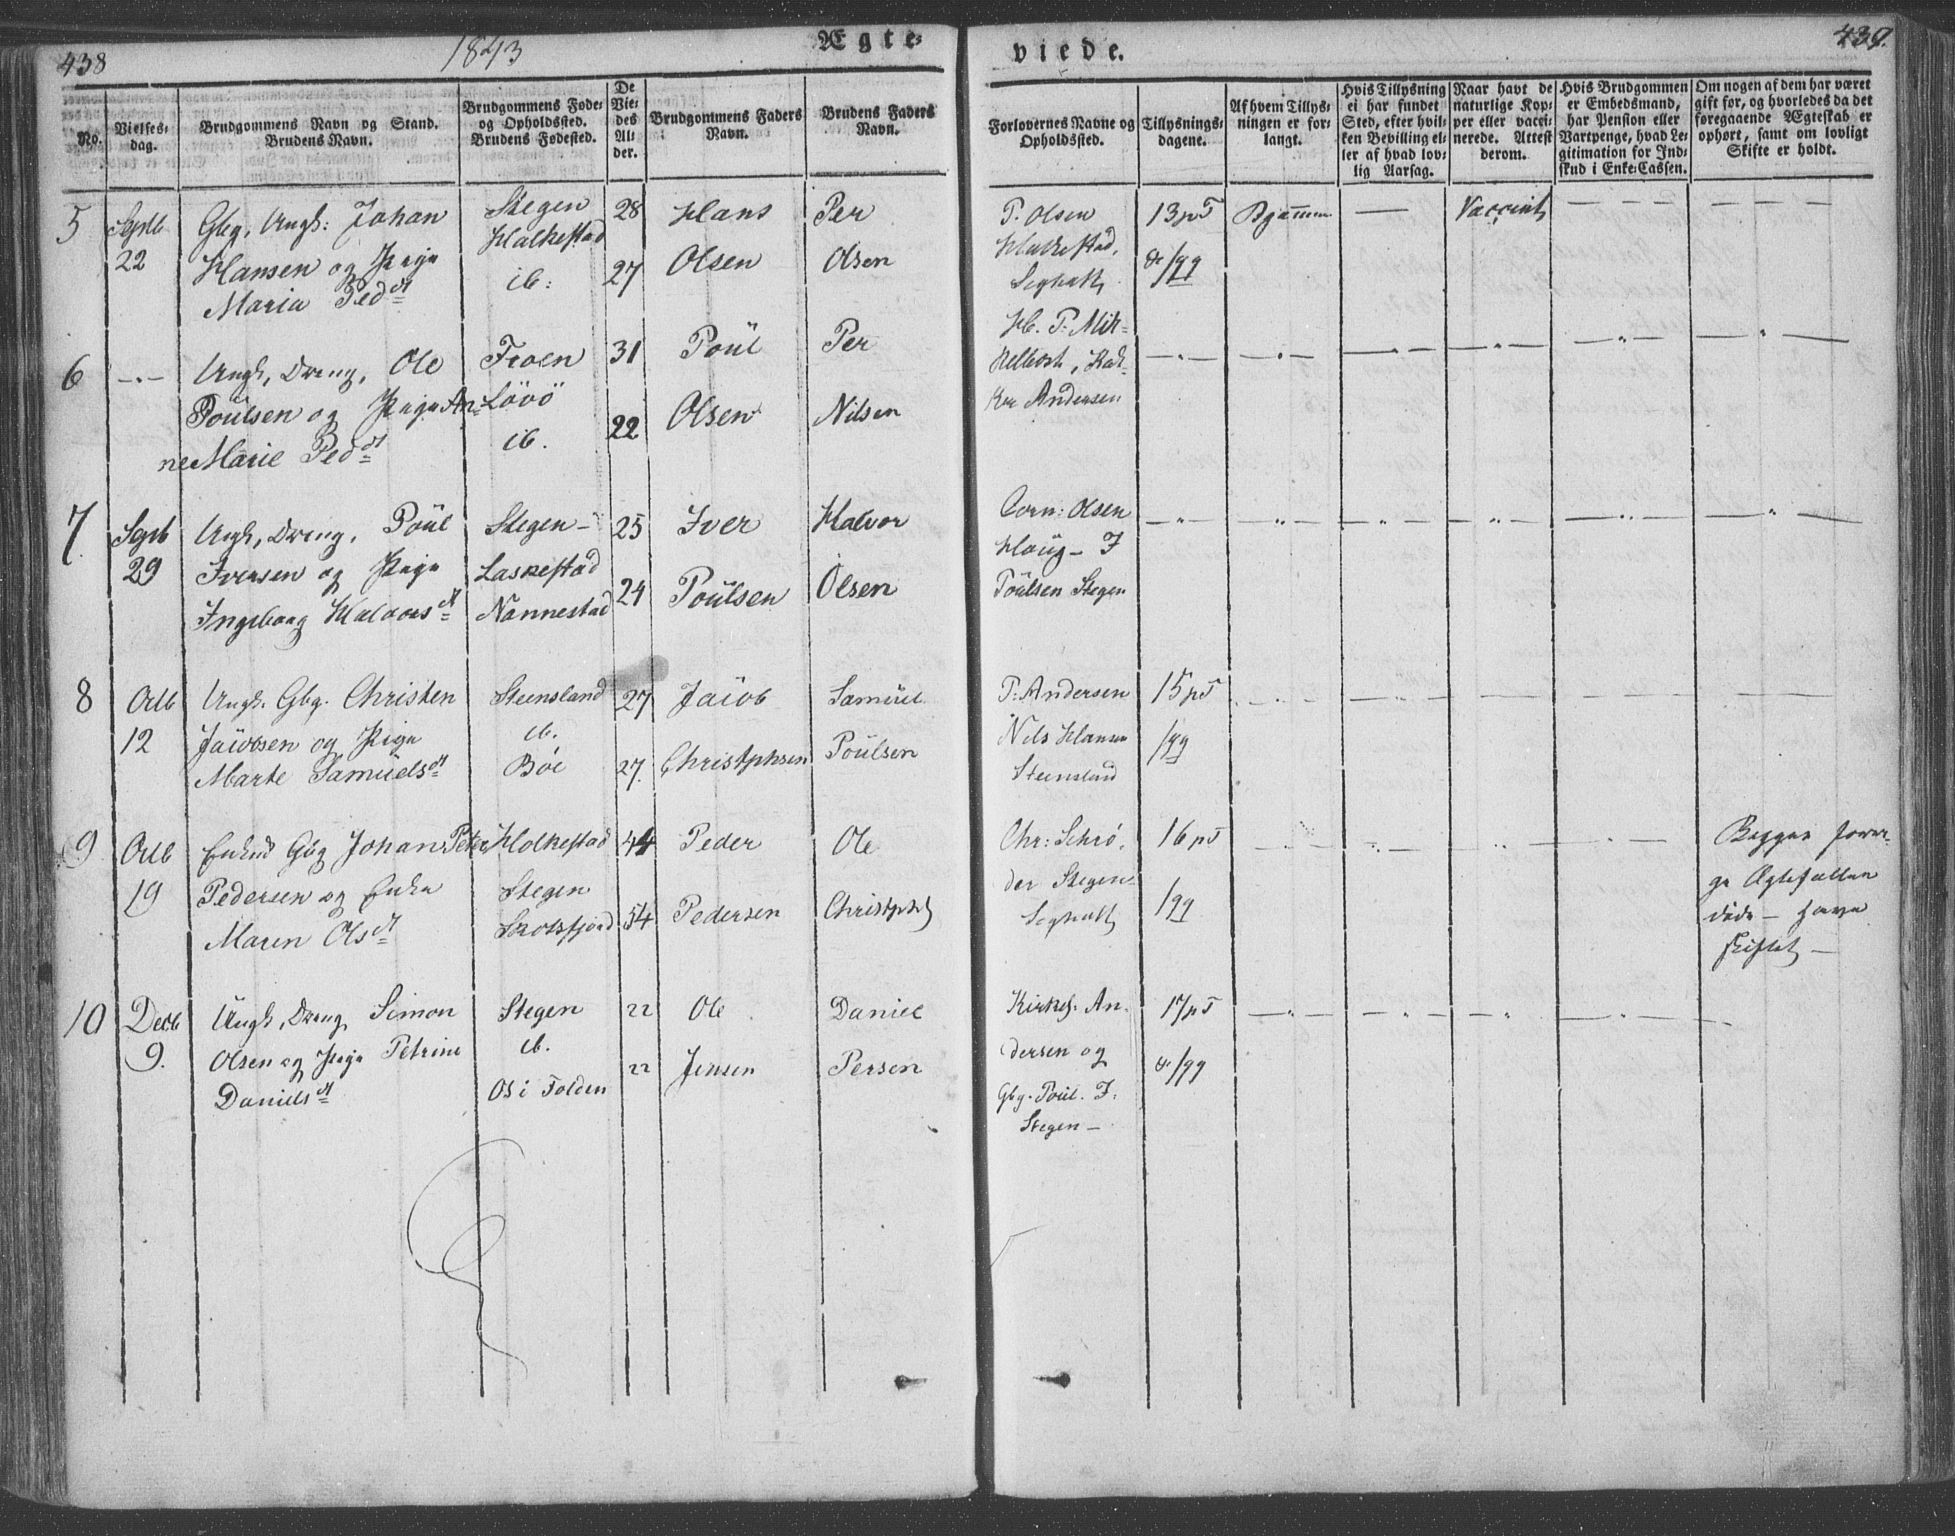 438
1843
Ægte-
viede.
439.
No.
Vielses-
dag.
Brudgommens Navn og Stand.
Brudens Navn.
Brudgommens Føde-
og Opholdssted.
Brudens Fødested.
De
Vie-
des
Al-
der.
Brudgommens Faders
Navn.
Brudens Faders
Navn.
Forlovernes Navne og
Opholdssted.
Tillysnings-
dagene.
Af hvem Tillys-
ningen er for-
langt.
Hvis Tillysning
ei har fundet
Sted, efter hvil-
ken Bevilling el-
ler af hvad lov-
lig Aarsag.
Naar havt de
naturlige Kop-
per eller vacci-
nerede. Attest
derom.
Hvis Brudgommen
er Embedsmand,
har Pension eller
Vartpenge, hvad Le-
gitimation for Ind-
skud i Enke-Cassen.
Om nogen af dem har været
gift før, og hvorledes da det
foregaaende Ægteskab er
ophørt, samt om lovligt
Skifte er holdt.
5
Septb
22
Gbg, Ungk: Johan
Hansen og Pige
Maria Pedd
Stegen
Holkestad
ib:
28
27
Hans
Olsen
Per
Olsen
P. Olsen
Holkestad,
13 p T
Vaccint
6
Ungk, Dreng, Ole
Poülsen og Pige An-
ne Marie Pedd
Løvö
ib.
31
22
Poül
Olsen
Per
Nilsen
Andersen
7
Septb
29
Ungk, Dreng, Poül
Iversen og Pige
Ingeborg Halvorsd
Stegen -
Laskestad
Nannestad
25
24
Iver
Poülsen
Halvor
Olsen
Corn: Olsen
Haüg - I
Poülsen Stegen
8
Octb
12
Ungk. Gbg. Christen
Jacobsen og Pige
Marte Samüelsd
Steensland
ib.
Böe
27
27.
Jacob
Christphsen
Samüel
Poülsen
P: Andersen
Nils Hansen
Steensland
15 p T
9
Octb
19
Enked Gbg Johan Peter
Pedersen og Enke
Maren Olsd
Holkestad
Stegen
Skotsfjord
44
54
Peder
Pedersen
Ole
Christphs
Chr: Schrö-
der Stegen
16 p T
Begges forri-
ge Ægtefæller
döde - have
skiftet -
10
Decb
9.
Ungk, Dreng Simon
Olsen og Pige Petrine
Danielsd
Stegen
ib.
Os i Folden
22
22
Ole
Jensen
Daniel
Persen
Kirkes. An-
dersen og
Gbg. Poül. I.
Stegen -
17 p T